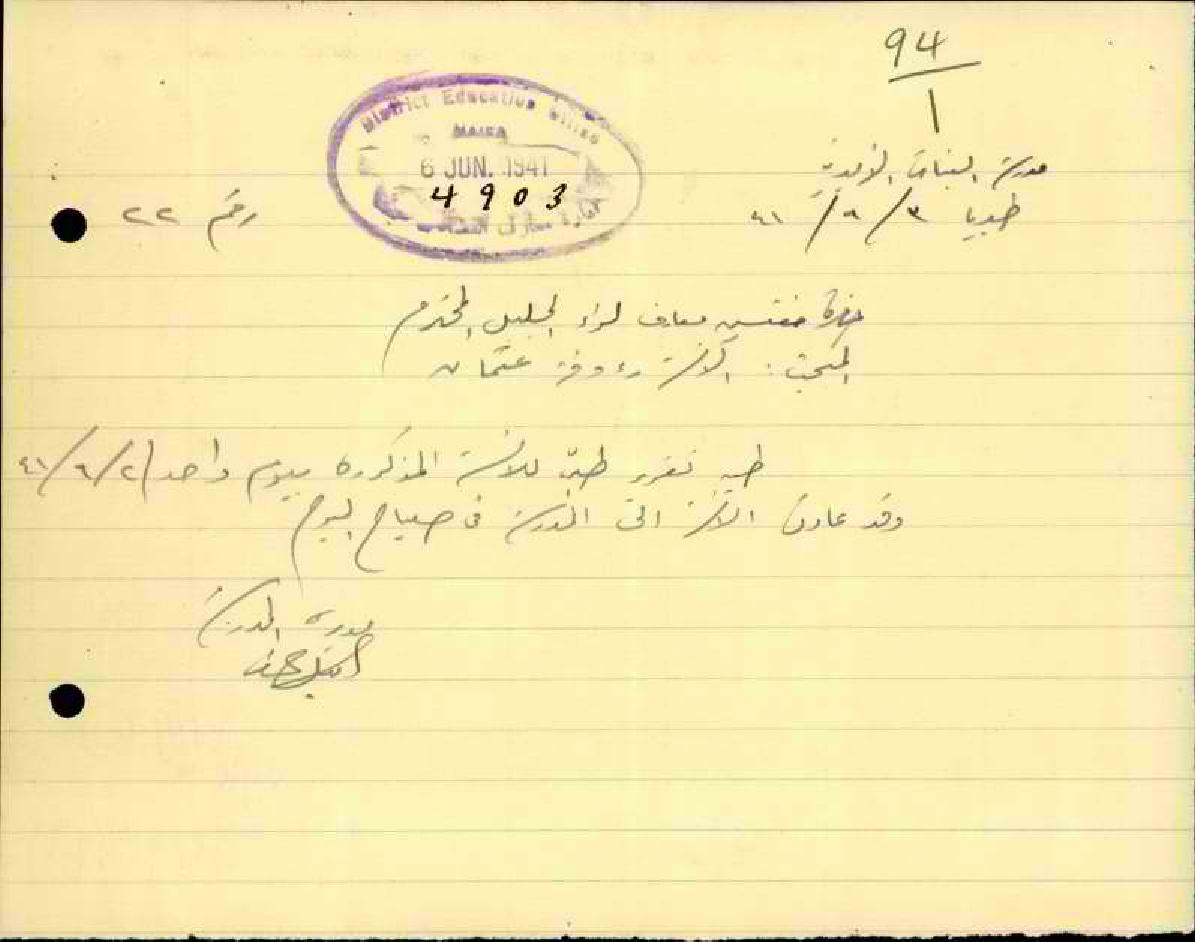 94
1
District Education Office
HAIFA
6 JUN. 1941
4903
مدرسة البنات الأميرية
طبريا ٣/٦/٤١
رقم ٢٢
حضرة مفتش معارف لواء الجليل المحترم
المبحث: الآنسة رءوفة عثمان
طيه تقرير طبي للآنسة المذكورة بيوم واحد ٢/٦/٤١
وقد عادت الآنسة الى المدرسة في صباح اليوم
مديرة المدرسة